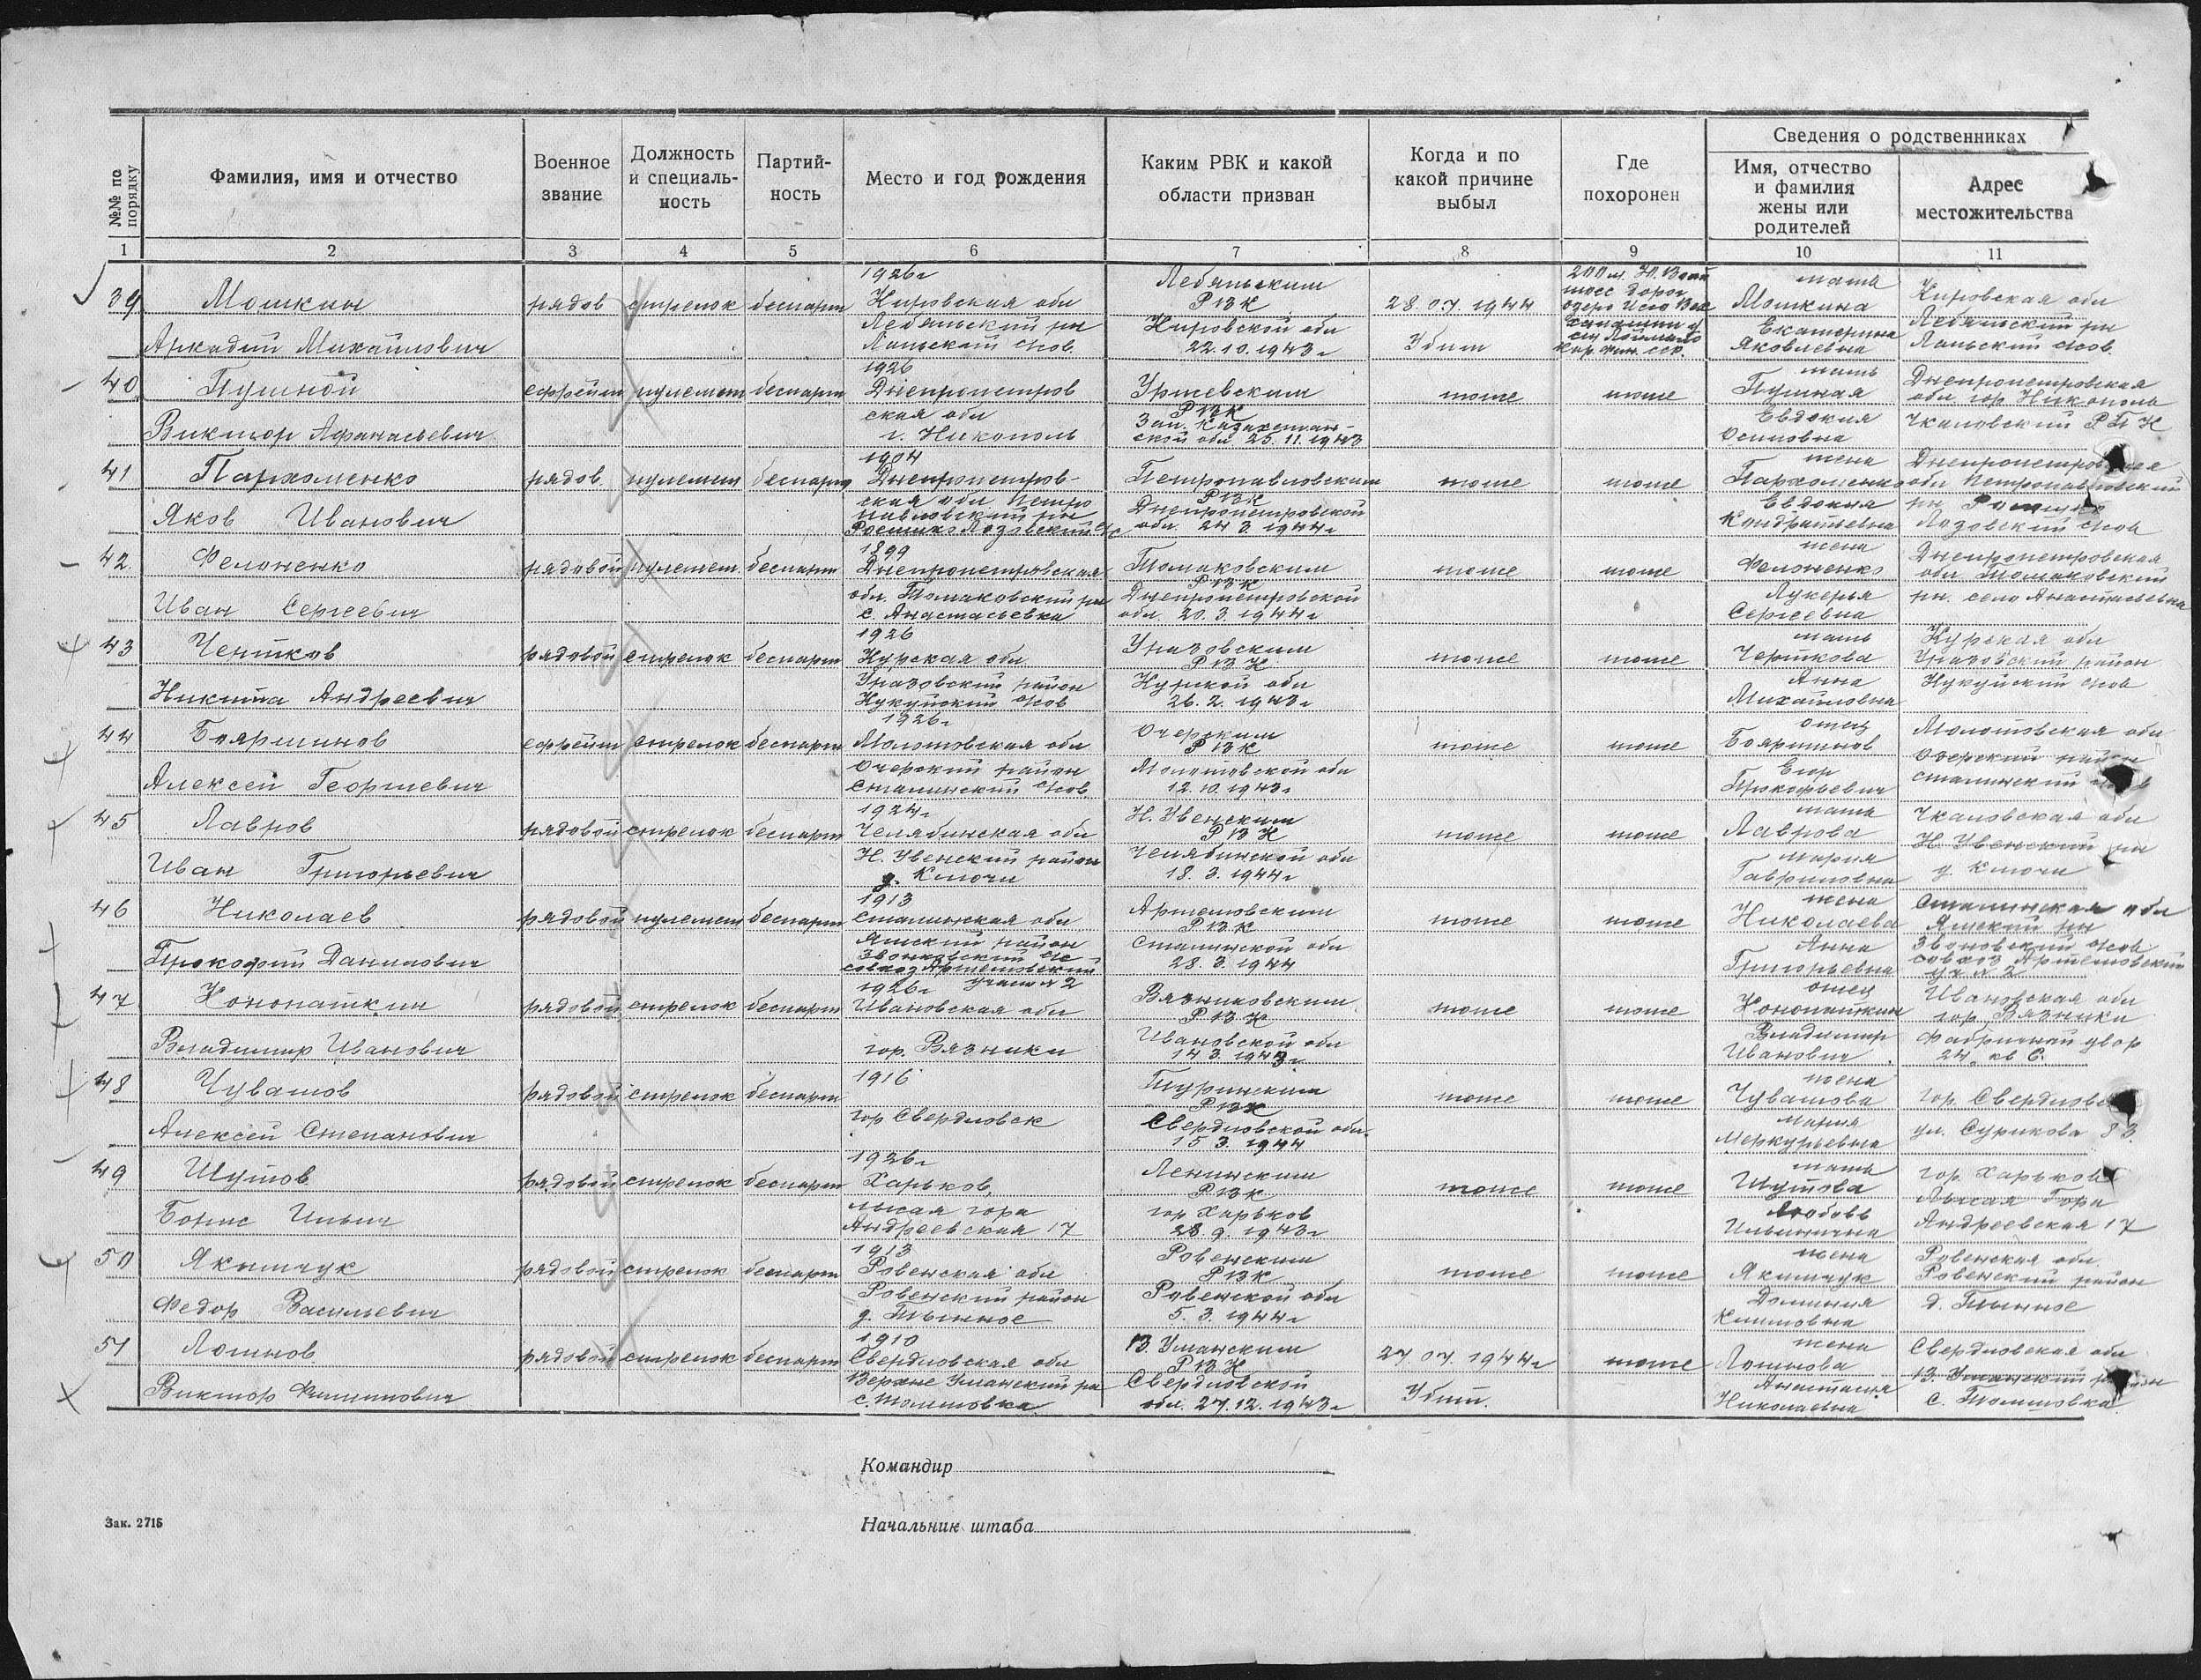 Сведения о родственниках
№№ по порядку
Фамилия, имя и отчество
Военное звание
Должность и специаль-ность
Партий-ность
Место и год рождения
Каким РВК и какой области призван
Когда и по какой причине выбыл
Где похоронен
Имя, отчество и фамилия жены или родителей
Адрес местожительства
1 2 3 4 5 6 7 8 9 10 11
39 Мошкин рядов стрелок беспарт 1926г Кировская обл Лебяжский рн Лебяжским РВК 28.07.1944 мать Мошкина Кировская обл
Аркадий Михайлович Кировской обл 22.10.1943г Убит Екатерина Яковлевна Лебяжский рн
40 Пушной ефрейт пулемет беспарт 1926 Днепропетров РВК тоже тоже мать Пушная Днепропетровская
Виктор Афанасьевич ская обл г. Никополь Зап. Казахстан-ской обл 25.11.1943 Евдокия Осиповна обл гор Никополь Чкаловский
41 Пархоменко рядов. пулемет беспарт 1904 Днепропетров- Петропавловским РВК тоже тоже жена Пархоменко обл Петропавловский
Яков Иванович ская обл Петро павловский рн Днепропетровской обл. 24 3. 1944г Евдокия Кондратьевна рн
42 Фелоненко рядовой пулемет. беспарт 1899 Днепропетровская Томаковским РВК тоже тоже жена Фелоненко Днепропетровская обл Томаковский
Иван Сергеевич обл. Томаковский рн с. Анастасьевка Днепропетровской обл. 20. 3. 1944г Лукерья Сергеевна рн. село Анастасьевка
43 Чертков рядовой стрелок беспарт 1926 Курская обл Уразовским РВК тоже тоже мать Черткова Курская обл Уразовский район
Никита Андреевич Уразовский район Курской обл 26. 2. 1943г Анна Михайловна
44 Бояршинов ефрейт стрелок беспарт 1926г Молотовская обл Очерским РВК тоже тоже отец Бояршинов Молотовская обл
Алексей Георгиевич Очерский район Сталинский Молотовской обл 12. 10. 1943г Егор Прокофьевич Очерский район Сталинский
45 Лавров рядовой стрелок беспарт 1924г Челябинская обл Н. Увенским РВК тоже тоже мать Лаврова Чкаловская обл
Иван Григорьевич Н. Увенский район д. Ключи Челябинской обл 18. 3. 1944г Мария Гавриловна Н. Увенский рн д Ключи
46 Николаев рядовой пулемет беспарт 1913 Сталинская обл Артемовским РВК тоже тоже жена Николаева Сталинская обл Ямский рн
Прокофий Данилович Ямский район совхоз Артемовский участ № 2 Сталинской обл 28. 3. 1944 Анна Григорьевна совхоз Артемовский уч № 2
47 Конопаткин рядовой стрелок беспарт 1926г Ивановская обл Вязниковским РВК тоже тоже отец Конопаткин Ивановская обл гор Вязники
Владимир Иванович гор. Вязники Ивановской обл 14 3. 1943г Владимир Иванович Фабричный двор 24. кв 6.
48 Чувашов рядовой стрелок беспарт 1916 Туринским РВК тоже тоже жена Чувашова гор. Свердловск
Алексей Степанович гор Свердловск Свердловской обл. 15 3. 1944 Мария Меркурьевна ул. Сурикова 83.
49 Шутов рядовой стрелок беспарт 1926г Харьков, Ленинским РВК тоже тоже мать Шутова гор. Харьков
Борис Ильич лысая гора Андреевская 17 гор Харьков 28. 9. 1943г Любовь Ильинична Лысая Гора Андреевская 17
50 Якимчук рядовой стрелок беспарт 1913 Ровенская обл Ровенским РВК тоже тоже жена Якимчук Ровенская обл. Ровенский район
Федор Васильевич Ровенский район д. Тынное Ровенской обл 5. 3. 1944г Климовна д. Тынное
51 Логинов рядовой стрелок беспарт 1910 Свердловская обл РВК 27 07. 1944г тоже жена Логинова Свердловская обл
Виктор Филиппович Свердловской обл. 27.12. 1943г Убит. Анастасия Николаевна
Командир
Зак. 2715
Начальник штаба